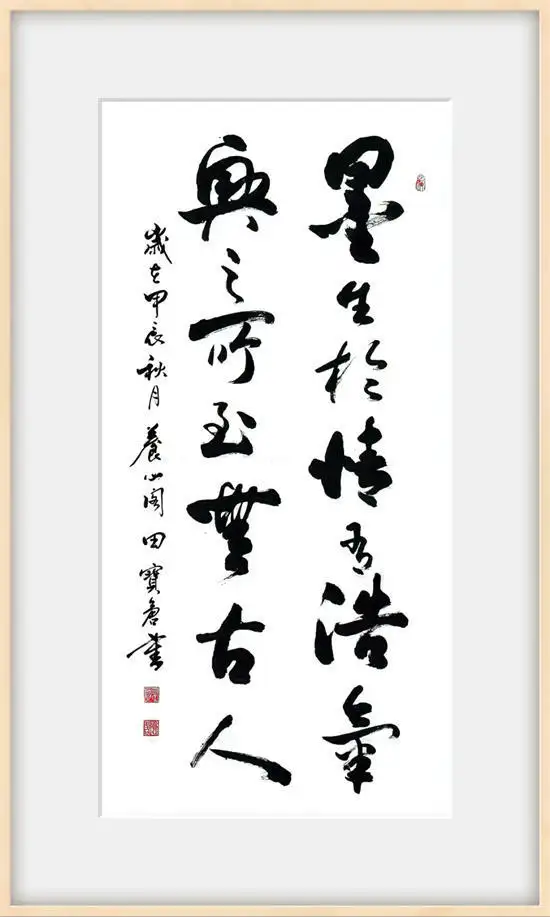 墨生於情有浩氣
興之所至無古人
歲在甲辰秋月養心閣田寶倉書